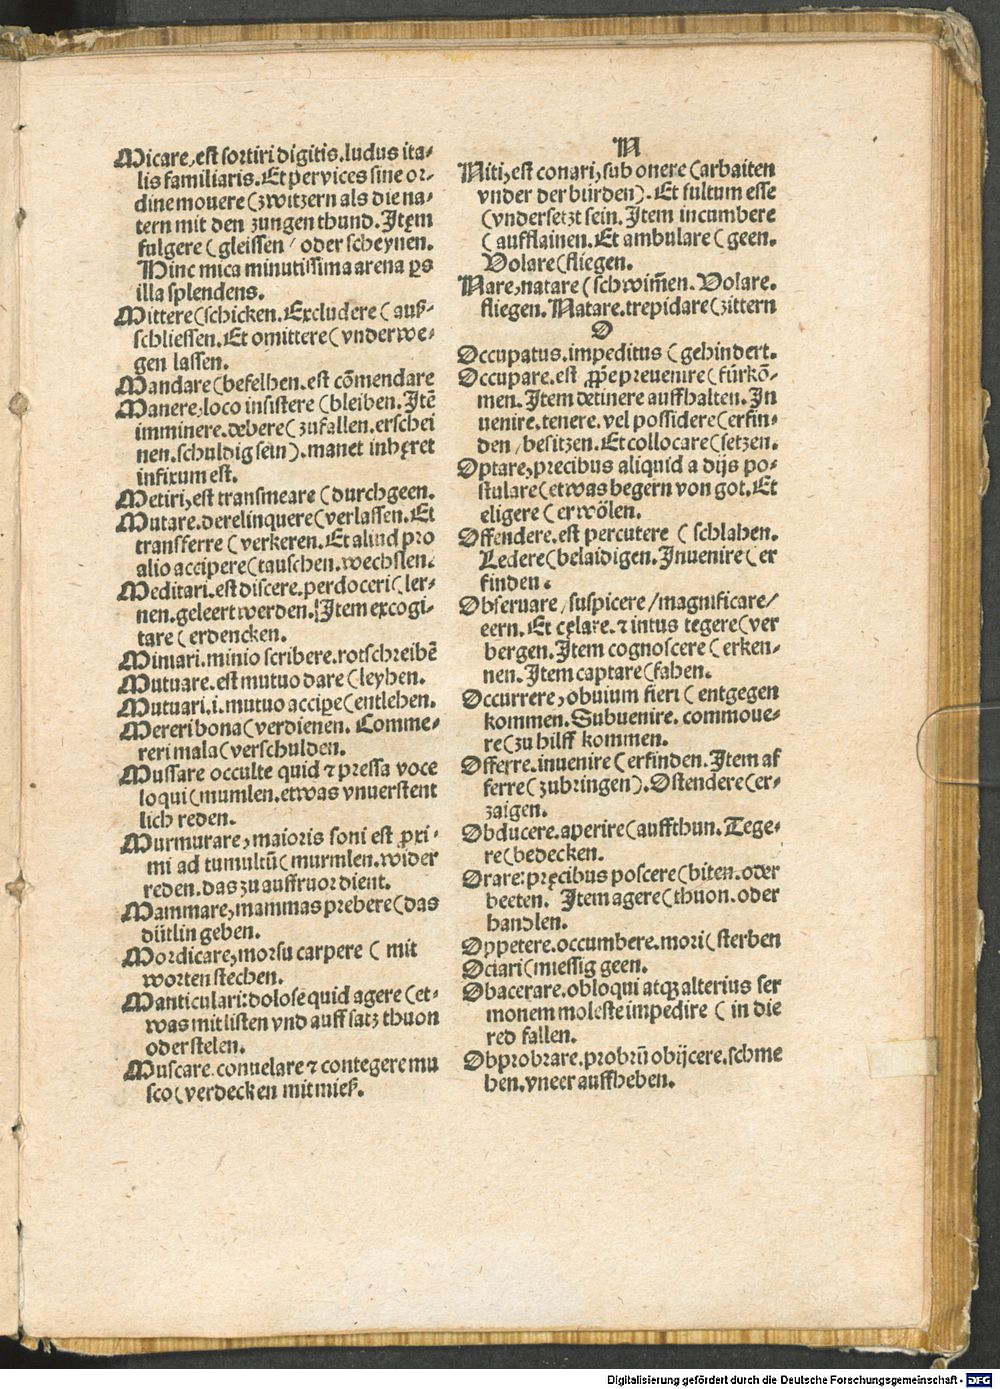 Micare, est sortiri digitis. ludus ita-
lis familiaris. Et per vices sine or-
dine mouere (zwitzern als die na-
tern mit den zungen thund. Itẹm
fulgere (gleissen / oder scheynen.
Hinc mica minutissima arena ꝑs
illa splendens.
Mittere (schicken. Excludere (auß-
schliessen. Et omittere (vnderwe-
gen lassen.
Mandare (befelhen. est cõmendare
Manere, loco insistere (bleiben. Itẽ
imminere. debere (zufallen. erschei
nen. schuldig sein). manet inhęret
infixum est.
Metiri, est transmeare (durchgeen.
Mutare. derelinquere (verlassen. Et
transferre (verkeren. Et aliud pro
alio accipere (tauschen. wechslen.
Meditari. est discere. perdoceri (ler-
nen. geleert werden. Item excogi-
tare (erdencken.
Miniari. minio scribere. rotschreibẽ
Mutuare. est mutuo dare (leyhen.
Mutuari. i. mutuo acciꝑe (entlehen.
Mereri bona (verdienen. Comme-
reri mala (verschulden.
Mussare occulte quid ⁊ pressa voce
loqui (mumlen. etwas vnuerstent
lich reden.
Murmurare, maioris soni est ꝓxi-
mi ad tumultũ (murmlen. wider
reden. das zu auffruor dient.
Mammare, mammas prebere (das
dütlin geben.
Mordicare, morsu carpere (mit
worten stechen.
Manticulari: dolose quid agere (et-
was mit listen vnd auffsatz thuon
oder stelen.
Muscare. conuelare ⁊ contegere mu
sco (verdecken mit mieß.
N
Niti, est conari, sub onere (arbaiten
vnder der bürden). Et fultum esse
(vndersetzt sein. Item incumbere
(aufflainen. Et ambulare (geen.
Volare (fliegen.
Nare, natare (schwim̃en. Volare.
fliegen. Natare. trepidare (zittern
O
Occupatus. impeditus (gehindert.
Occupare. est ꝓṗe preuenire (fürkõ-
men. Item detinere auffhalten. In
uenire. tenere. vel possidere (erfin-
den / besitzen. Et collocare (setzen.
Optare, precibus aliquid a dijs po-
stulare (etwas begern von got. Et
eligere (erwölen.
Offendere. est percutere (schlahen.
Ledere (belaidigen. Inuenire (er
finden.
Obseruare / suspicere / magnificare /
eern. Et cęlare. ⁊ intus tegere (ver
bergen. Item cognoscere (erken-
nen. Item captare (fahen.
Occurrere, obuium fieri (entgegen
kommen. Subuenire. commoue-
re (zu hilff kommen.
Offerre. inuenire (erfinden. Item af
ferre (zubringen). Ostendere (er-
zaigen.
Obducere. aperire (auffthun. Tege-
re (bedecken.
Orare: pręcibus poscere (biten. oder
beeten. Item agere (thuon. oder
handlen.
Oppetere. occumbere. mori (sterben
Ociari (miessig geen.
Obacerare. obloqui atqꝫ alterius ser
monem moleste impedire (in die
red fallen.
Obprobrare. probrũ obijcere. schme
hen. vneer auffheben.
Digitalisierung gefördert durch die Deutsche Forschungsgemeinschaft - DFG